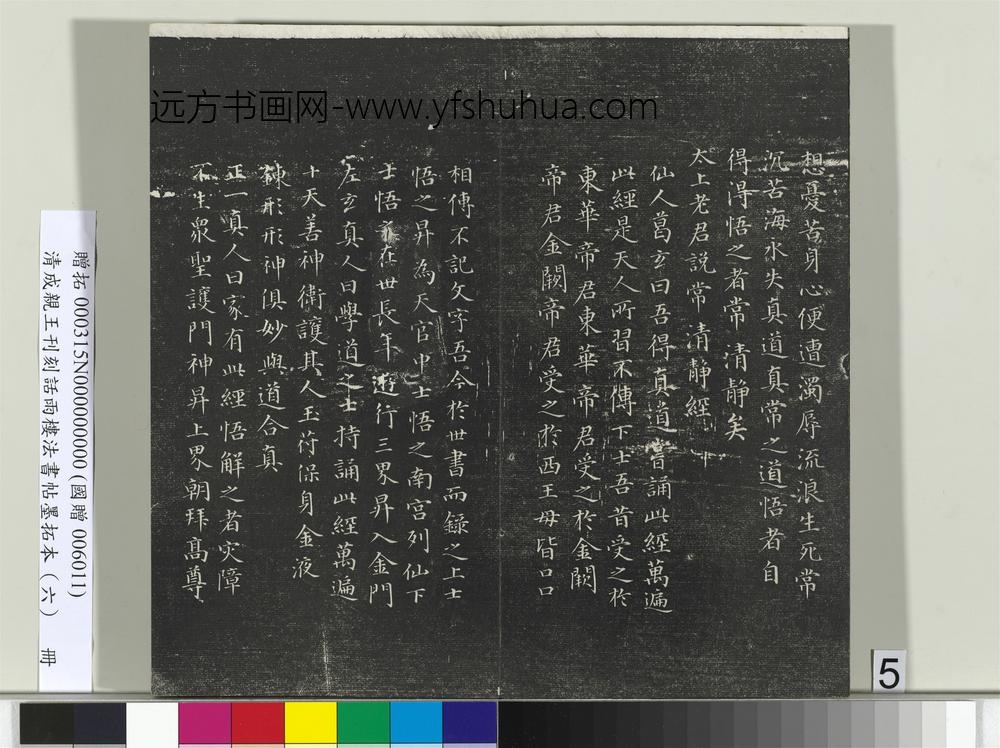 远方书画网-www.yfshuhua.com
想憂苦身心便遭濁辱流浪生死常
沉苦海永失真道真常之道悟者自
得得悟之者常清靜矣
太上老君説常清靜經
仙人葛玄曰吾得真道曾誦此經萬遍
此經是天人所習不傳下士吾昔受之於
東華帝君東華帝君受之於金闕
帝君金闕帝君受之於西王母皆口口
相傳不記文字吾今於世書而錄之上士
悟之昇為天官中士悟之南宮列仙下
士悟之在世長年遊行三界昇入金門
左玄真人曰學道之士持誦此經萬遍
十天善神衛護其人玉符保身金液
鍊形形神俱妙與道合真
正一真人曰家有此經悟解之者灾障
不生衆聖護門神昇上界朝拜髙尊
贈拓 000315N000000000 (國贈 006011)
清成親王刊刻話雨樓法書帖墨拓本（六） 冊
5